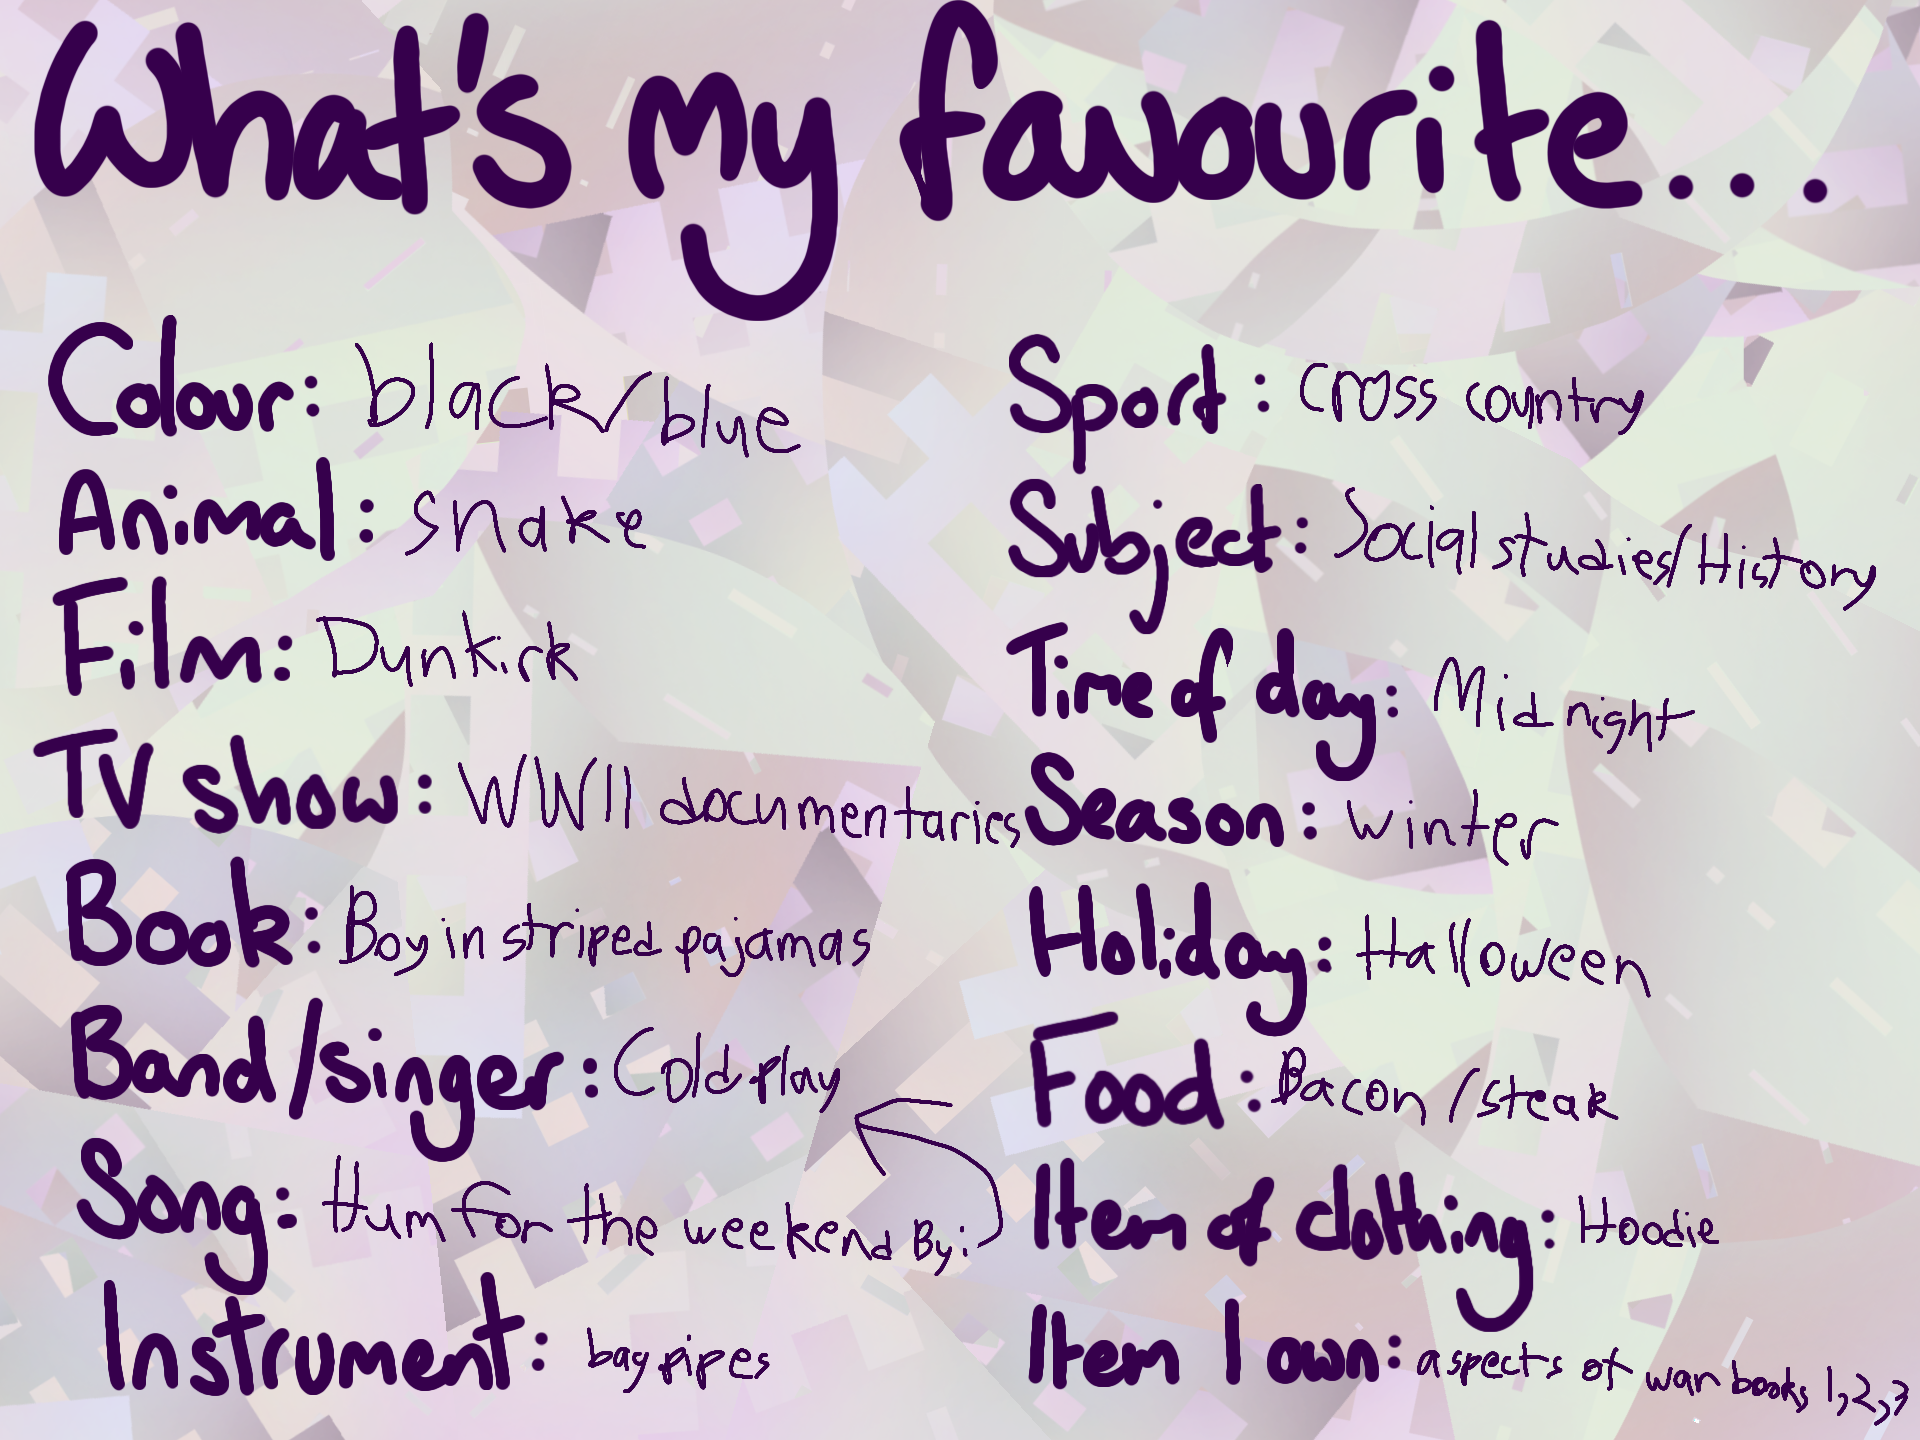 What's my favourite...
Colour: black/blue
Animal: snake
Film: Dunkirk
TV show: WWII documentaries
Book: Boy in striped pajamas
Band/singer: Coldplay
Song: Hum for the weekend By:
Instrument: bagpipes
Sport: cross country
Subject: Social studies/History
Time of day: Midnight
Season: winter
Holiday: Halloween
Food: Bacon/steak
Item of clothing: Hoodie
Item I own: aspects of war books 1,2,3